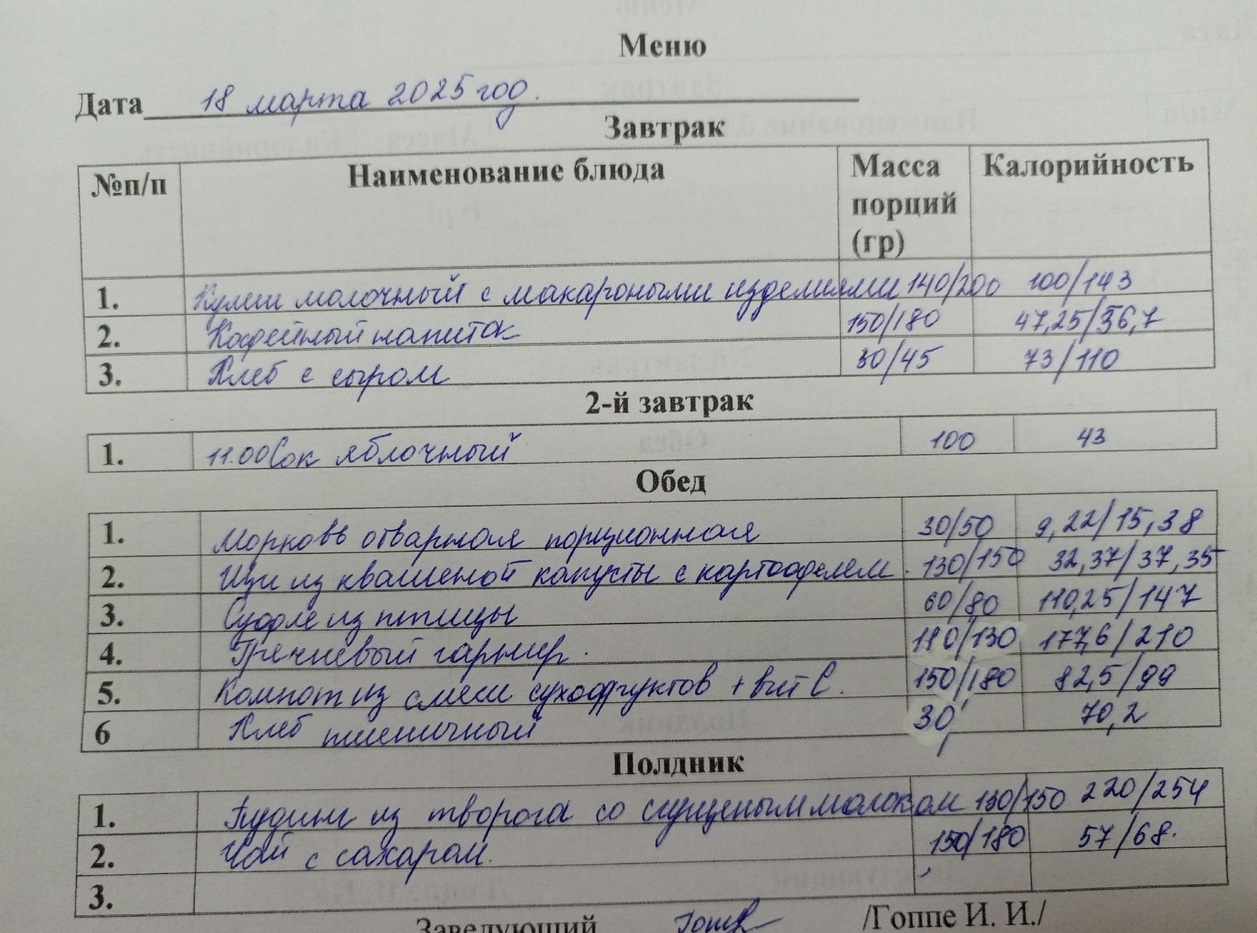 Меню
Дата 18 марта 2025 год.
Завтрак
№п/п Наименование блюда Масса порций (гр) Калорийность
1. Кулеш молочный с макароными изделиями 140/200 100/143
2. Кофейный напиток 150/180 47,25/56,7
3. Хлеб с сыром 30/45 73/110
2-й завтрак
1. 11.00 Сок яблочный 100 43
Обед
1. Морковь отварная порционная 30/50 9,22/15,38
2. Щи из квашеной капусты с картофелем. 130/150 32,37/37,35
3. Суфле из птицы 60/80 110,25/147
4. Гречневый гарнир. 110/130 177,6/210
5. Компот из смеси сухофруктов + вит С. 150/180 82,5/99
6 Хлеб пшеничный 30 70,2
Полдник
1. Пудинг из творога со сгущеным молоком 130/150 220/254
2. Чай с сахаром. 150/180 57/68.
3.
Заведующий /Гоппе И. И./